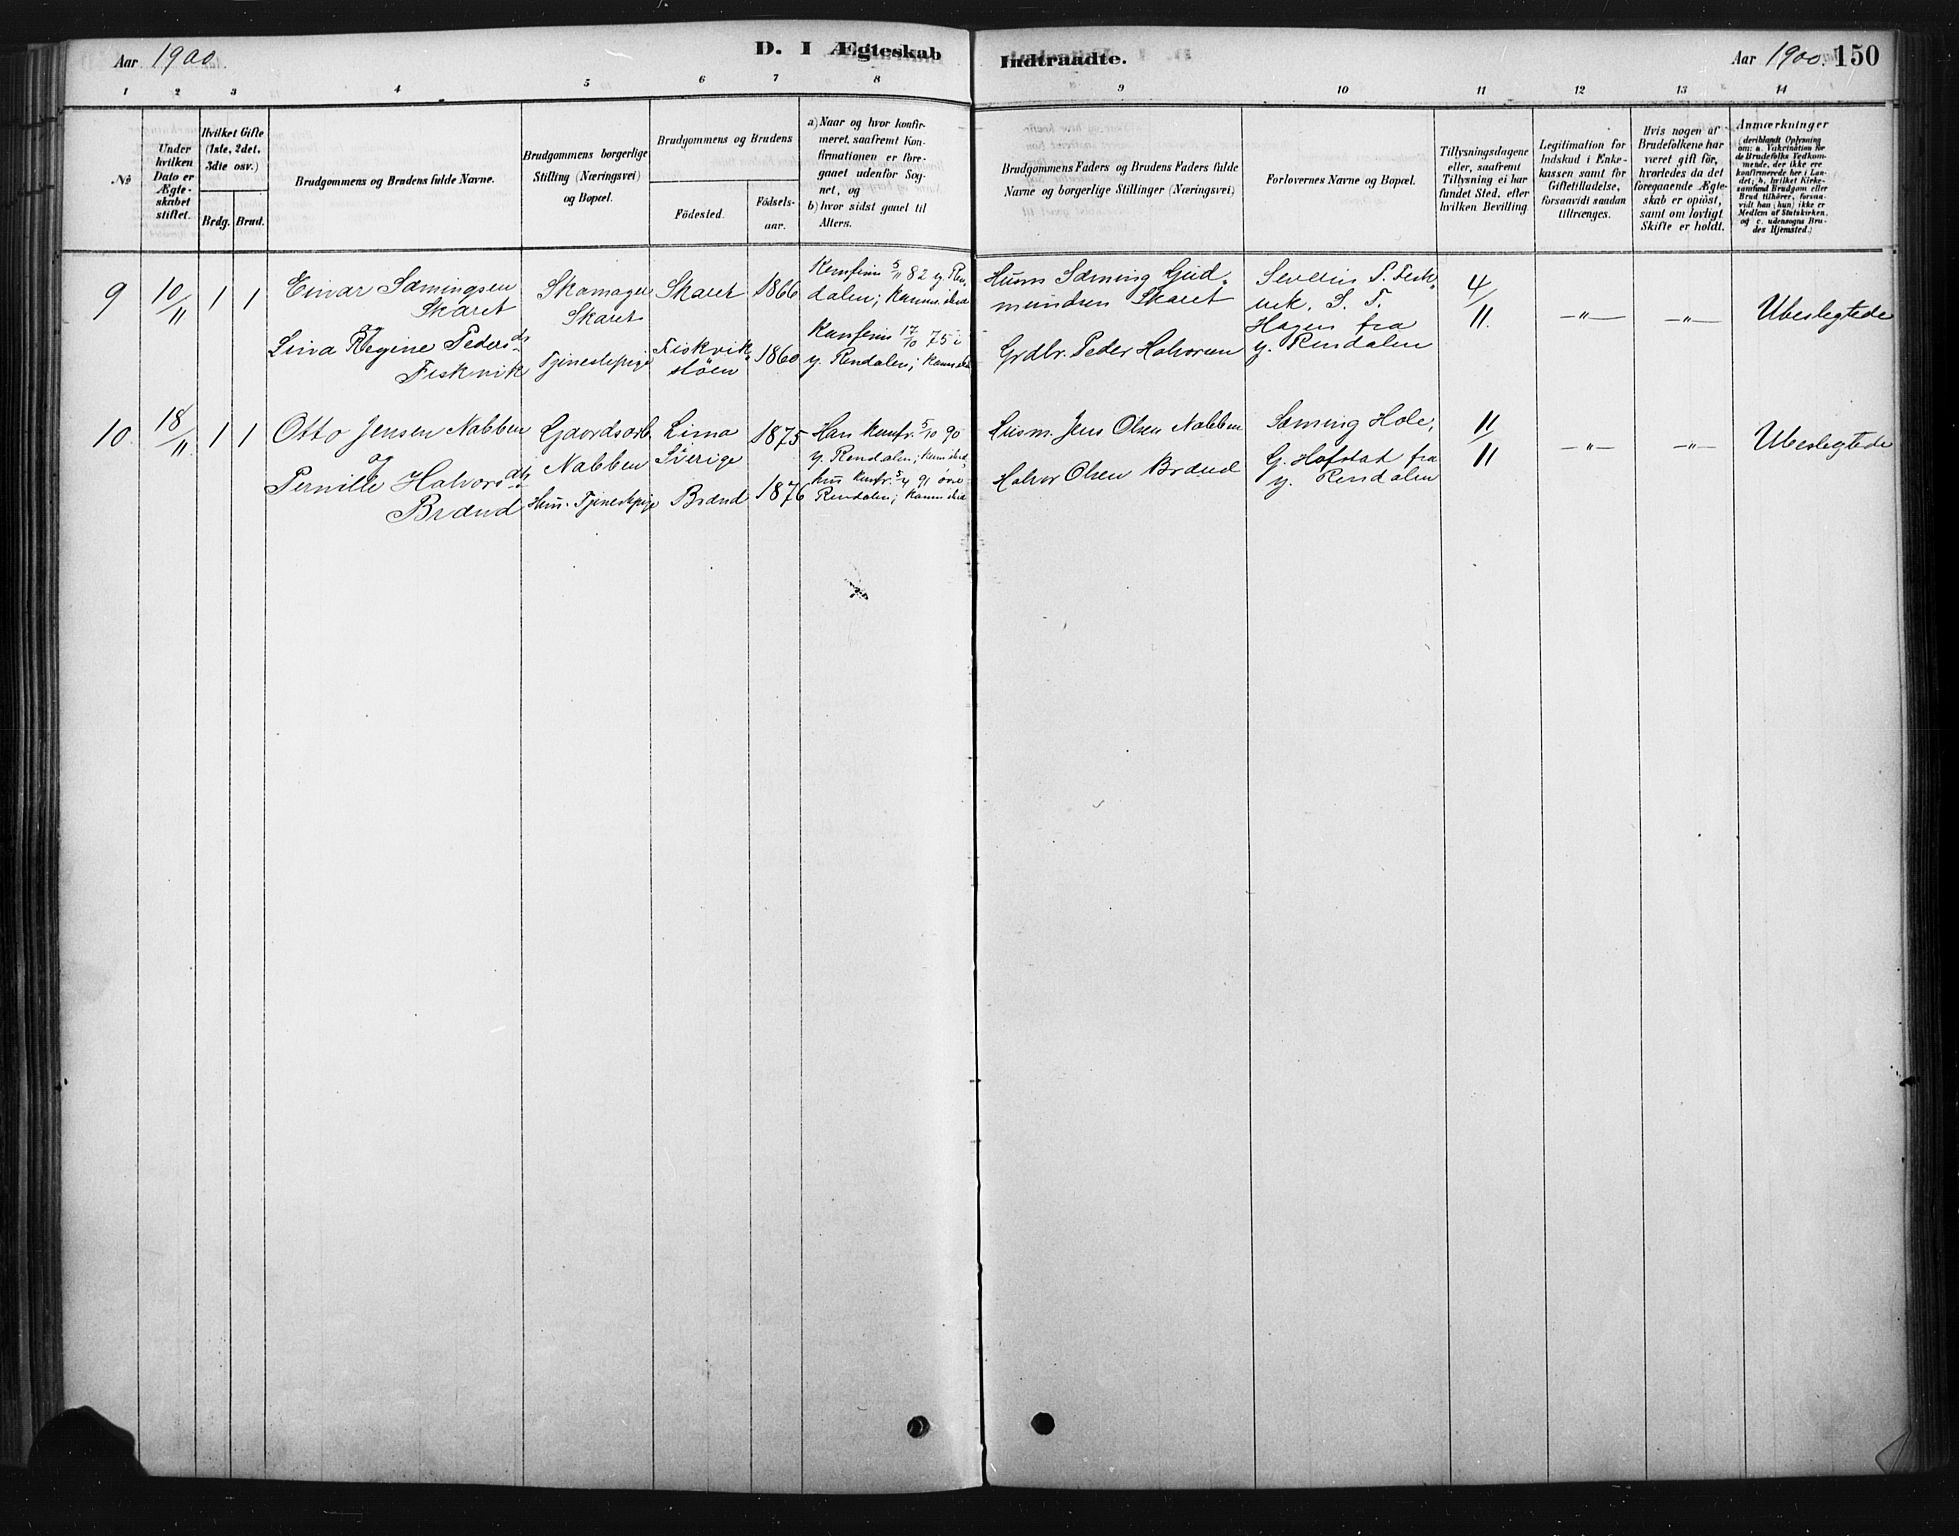 Aar 1900.
D. I Ægteskab
Indtraadte.
Aar 1900. 150
1 2 3 4 5 6 7 8 9 10 11 12 13 14
№
Under hvilken Dato er Ægteskabet stiftet.
Hvilket Gifte (1ste, 2det, 3die osv.)
Brdg. Brud.
Brudgommens og Brudens fulde Navne.
Brudgommens borgerlige Stilling (Næringsvei) og Bopæl.
Brudgommens og Brudens
Födested.
Födsels-aar.
a) Naar og hvor konfir-
meret, saafremt Kon-
firmationen er fore-
gaaet udenfor Sog-
net, og
b) hvor sidst gaaet til
Alters.
Brudgommens Faders og Brudens Faders fulde
Navne og borgerlige Stillinger (Næringsvei)
Forlovernes Navne og Bopæl.
Tillysningsdagene
eller, saafremt
Tillysning ei har
fundet Sted, efter
hvilken Bevilling.
Legitimation for
Indskud i Enke-
kassen samt for
Giftetilladelse,
forsaavidt saadan
tiltrænges.
Hvis nogen af
Brudefolkene har
været gift för,
hvorledes da det
foregaaende Ægte-
skab er oplöst,
samt om lovligt
Skifte er holdt.
Anmærkninger
(deriblandt Oplysning
om: a. Vakcination for
de Brudefolks Vedkom-
mende, der ikke ere
konfirmerede her i Lan-
det; b. hvilket Kirke-
samfund Brudgom eller
Brud tilhörer, forsaa-
vidt han (hun) ikke er
Medlem af Statskirken,
og c. udensogns Bru-
des Hjemsted.)
9 10/11 1 1
Einar Sæmingsen
Skaret
og
Lina Regine Pedersdtr
Fiskvik
Skomager
Skaret
Tjenestepige
Skaret 1866
Fiskvik-
støen 1860
Konfirm 5/11 82 y. Ren-
dalen; komm. ibid
Konfirm 17/10 75 i
y. Rendalen; komm ibid
Husm Sæming Gud-
mundsen Skaret
Grdbr. Peder Halvorsen
Severin P. Fisk-
vik. S. T.
Hagen fra
y. Rendalen
4/11.
—"— —"— Ubeslegtede
10. 18/11. 1 1
Otto Jensen Nabben
og
Pernille Halvorsdtr
Brænd
Gaardsarb.
Nabben
Hun. Tjenestepige
Lima
Sverige 1875
Brænd 1876
Han konfr. 5/10 90
y. Rendalen; kom ibid
hun konfr. 5/4 91 øvre
Rendalen; komm ibid
Husm. Jens Olsen Nabben
Halvor Olsen Brænd
Sæming Hole,
G. Hafstad fra
y. Rendalen
11/11
—"— —"— Ubeslegtede